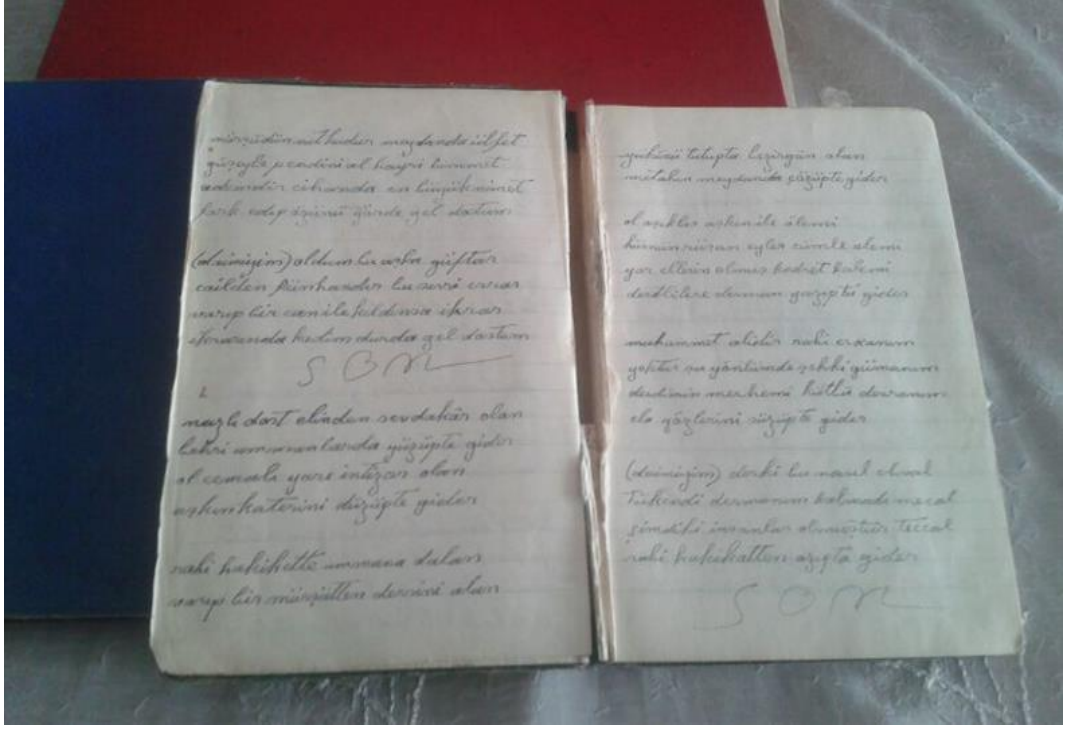 mürşüdün met heder meydanda ülfet
güzeyle pendini al hayri
ademdir cihanda en büyük nimet
fark edip özünü gürde gel dostum
(daimiyim) oldum bu aşka güftar
cailden pinhandır bu sırrı esrar
varup bir can ile kıldınsa ikrar
ikrarında kadim durda gel dostum
SON
2
nazlı dost elinden sevdakâr olan
bahri ummanlarda yüzüpte gider
ol cemalı yare intizar olan
aşkın katerini düzüpte gider
rahi hakikette ummana dalan
varıp bir mürşitten dersini alan
yükünü tutupta bezirgân olan
metahın meydanda çözüpte gider
ol aşıkler aşkın ile âlemi
eyler cümle alemi
yar ellerin olmuş kudret kalemi
dertlilere derman yazıpta gider
muhammet alidir rahi erkanım
yoktur şu gönlümde şekki gümanım
derdimin merhemi kutlu devranım
ela gözlerini süzüpte gider
(daimiyim) derki bu nasıl ahval
Tükendi dermanım kalmadı mecal
şimdiki insanlar olmuştur teccal
rahi hakikatten azıpta gider
SON